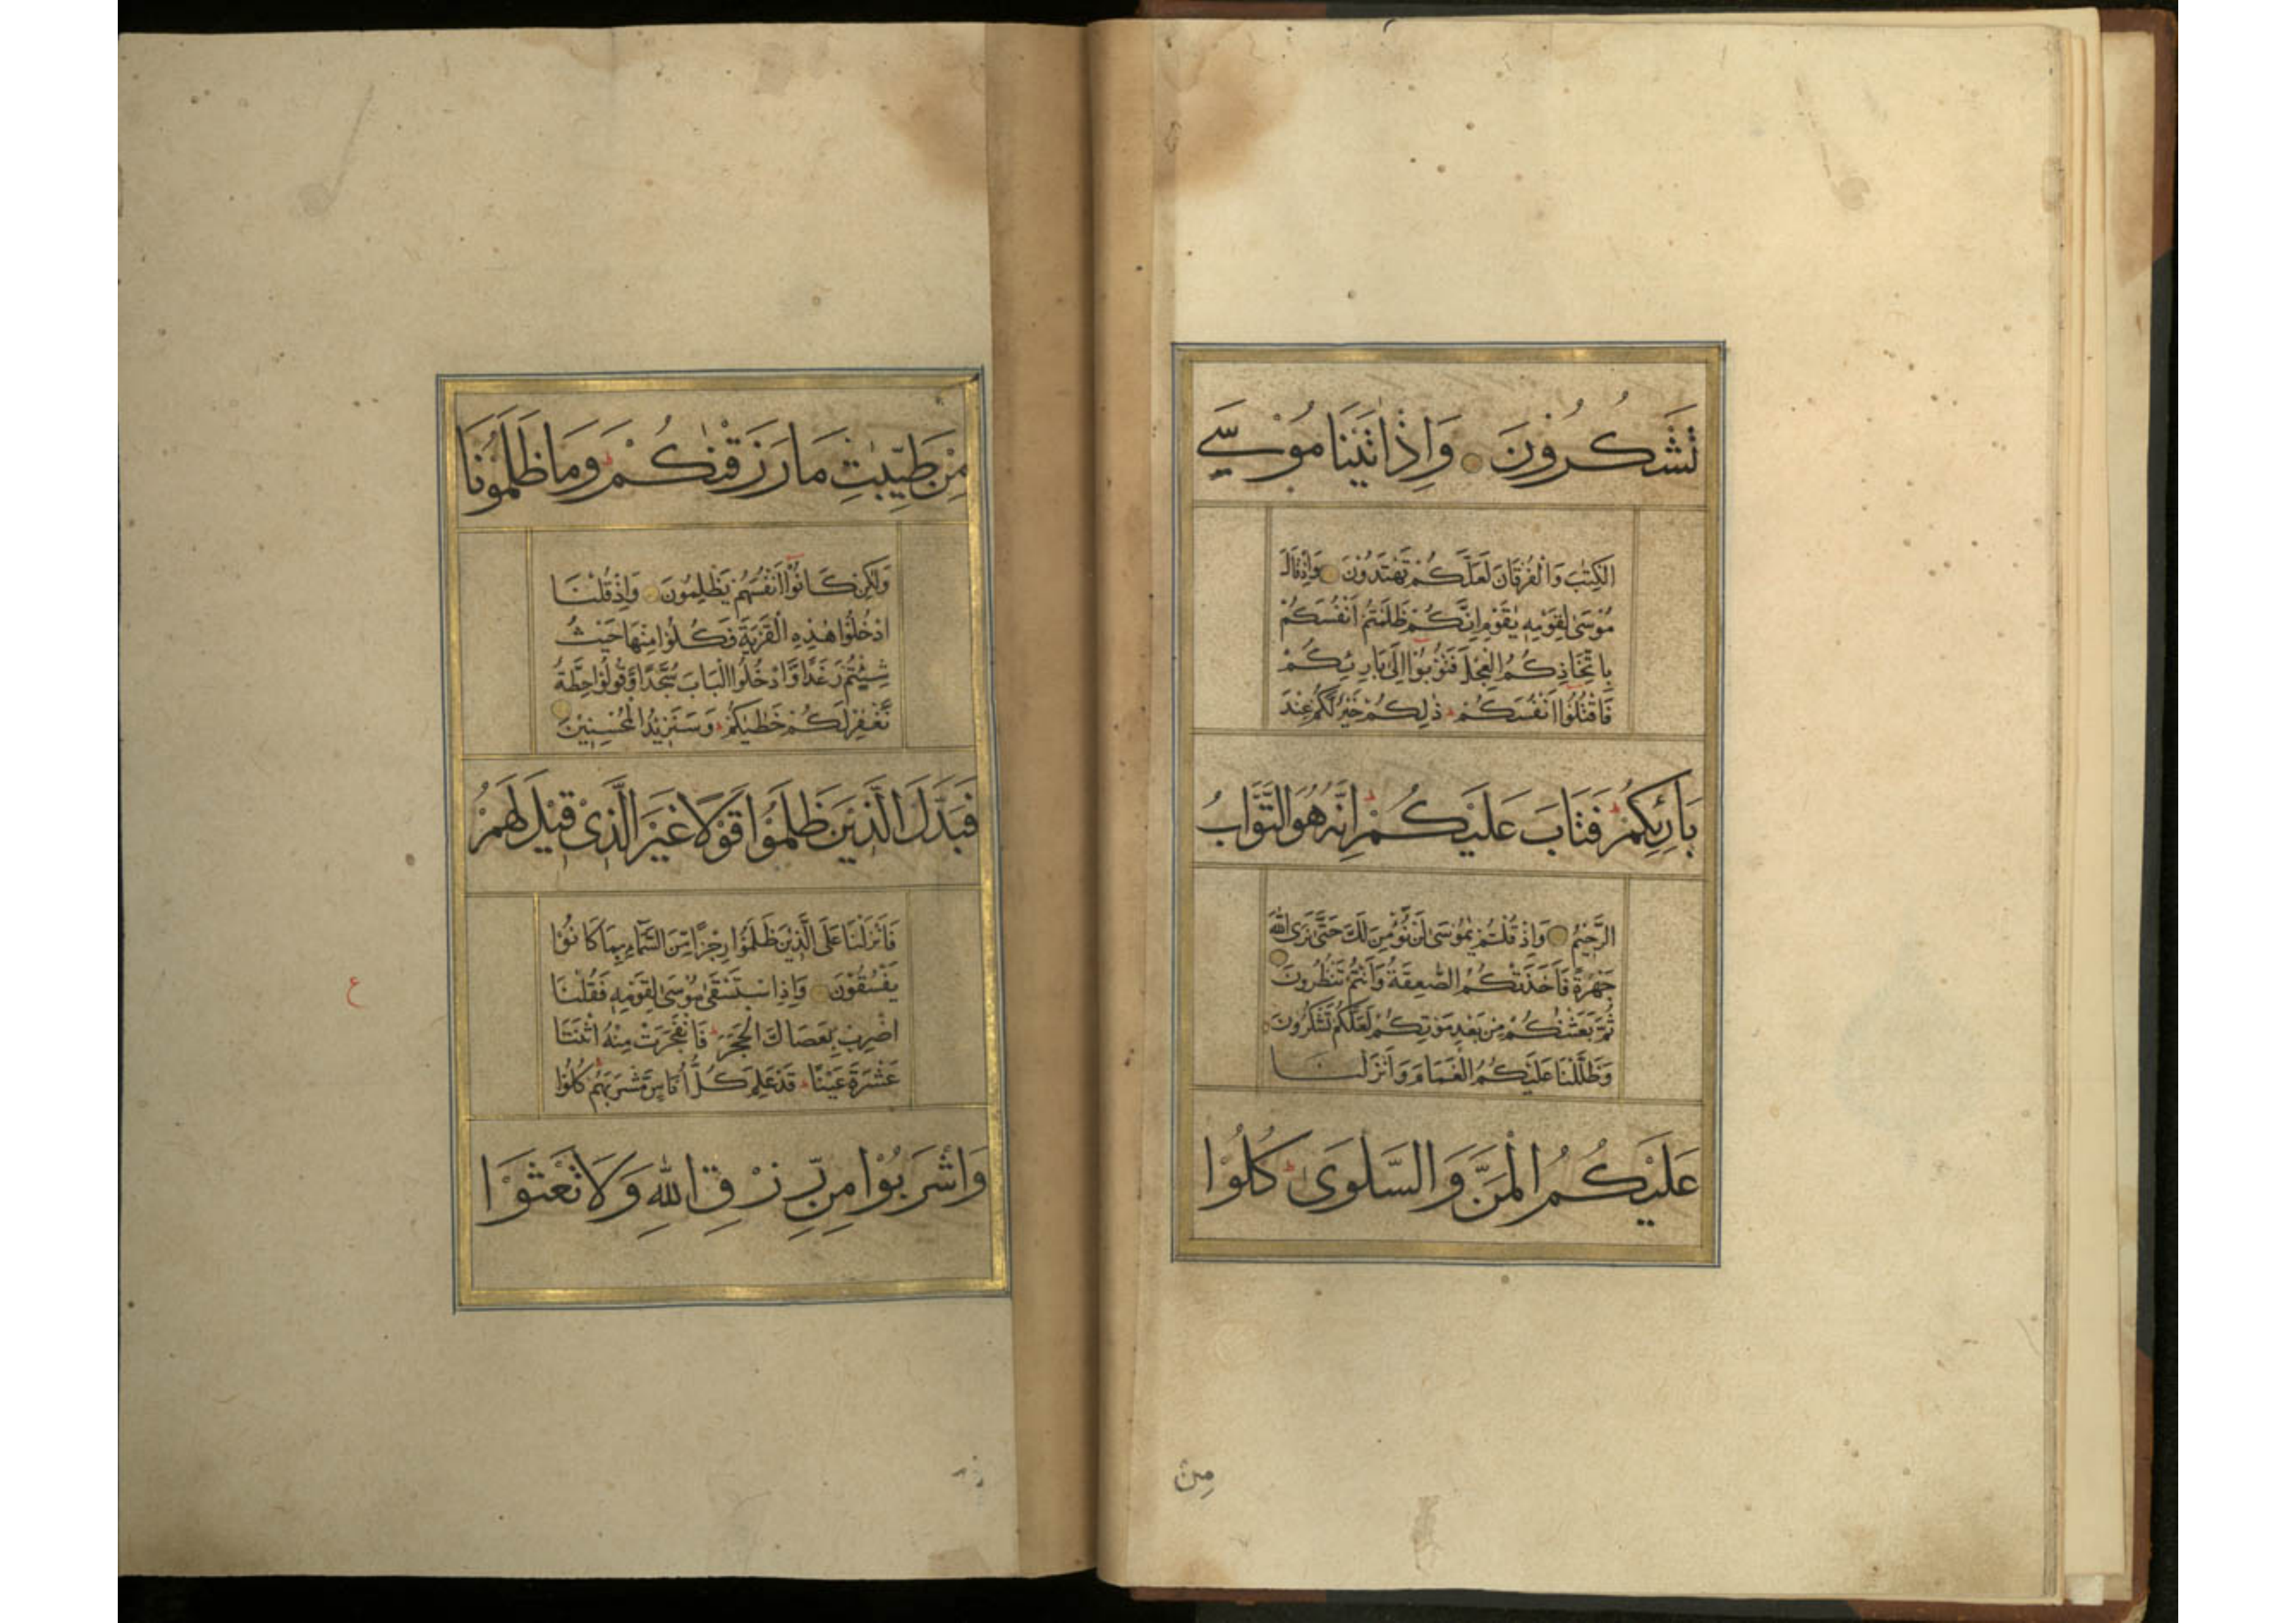 تَشْكُرُوْنَ وَاِذْ اٰتَيْنَا مُوْسَى
الْكِتٰبَ وَالْفُرْقَانَ لَعَلَّكُمْ تَهْتَدُوْنَ وَاِذْ قَالَ
مُوْسٰى لِقَوْمِهٖ يٰقَوْمِ اِنَّكُمْ ظَلَمْتُمْ اَنْفُسَكُمْ
بِاتِّخَاذِكُمُ الْعِجْلَ فَتُوْبُوْٓا اِلٰى بَارِئِكُمْ
فَاقْتُلُوْٓا اَنْفُسَكُمْ ذٰلِكُمْ خَيْرٌ لَّكُمْ عِنْدَ
بَارِئِكُمْ فَتَابَ عَلَيْكُمْ اِنَّهٗ هُوَ التَّوَّابُ
الرَّحِيْمُ وَاِذْ قُلْتُمْ يٰمُوْسٰى لَنْ نُّؤْمِنَ لَكَ حَتّٰى نَرَى اللّٰهَ
جَهْرَةً فَاَخَذَتْكُمُ الصّٰعِقَةُ وَاَنْتُمْ تَنْظُرُوْنَ
ثُمَّ بَعَثْنٰكُمْ مِنْ بَعْدِ مَوْتِكُمْ لَعَلَّكُمْ تَشْكُرُوْنَ
وَظَلَّلْنَا عَلَيْكُمُ الْغَمَامَ وَاَنْزَلْنَا
عَلَيْكُمُ الْمَنَّ وَالسَّلْوٰى كُلُوْا
مِنْ
مِنْ طَيِّبٰتِ مَا رَزَقْنٰكُمْ وَمَا ظَلَمُوْنَا
وَلٰكِنْ كَانُوْٓا اَنْفُسَهُمْ يَظْلِمُوْنَ وَاِذْ قُلْنَا
ادْخُلُوْا هٰذِهِ الْقَرْيَةَ فَكُلُوْا مِنْهَا حَيْثُ
شِئْتُمْ رَغَدًا وَّادْخُلُوا الْبَابَ سُجَّدًا وَّقُوْلُوْا حِطَّةٌ
نَّغْفِرْ لَكُمْ خَطٰيٰكُمْ وَسَنَزِيْدُ الْمُحْسِنِيْنَ
فَبَدَّلَ الَّذِيْنَ ظَلَمُوْا قَوْلًا غَيْرَ الَّذِيْ قِيْلَ لَهُمْ
فَاَنْزَلْنَا عَلَى الَّذِيْنَ ظَلَمُوْا رِجْزًا مِّنَ السَّمَآءِ بِمَا كَانُوْا
يَفْسُقُوْنَ وَاِذِ اسْتَسْقٰى مُوْسٰى لِقَوْمِهٖ فَقُلْنَا
اضْرِبْ بِعَصَاكَ الْحَجَرَ فَانْفَجَرَتْ مِنْهُ اثْنَتَا
عَشْرَةَ عَيْنًا قَدْ عَلِمَ كُلُّ اُنَاسٍ مَّشْرَبَهُمْ كُلُوْا
ع
وَاشْرَبُوْا مِنْ رِّزْقِ اللّٰهِ وَلَا تَعْثَوْا